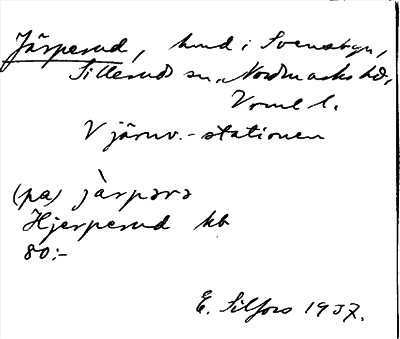 Järperud, hmd i Svensbyn,
Sillerud sn, Nordmarks hd,
Värml l.
V järnv.-stationen
(pa) jàrpərə
Hjerperud kb
80:-
E. Silfors 1937.